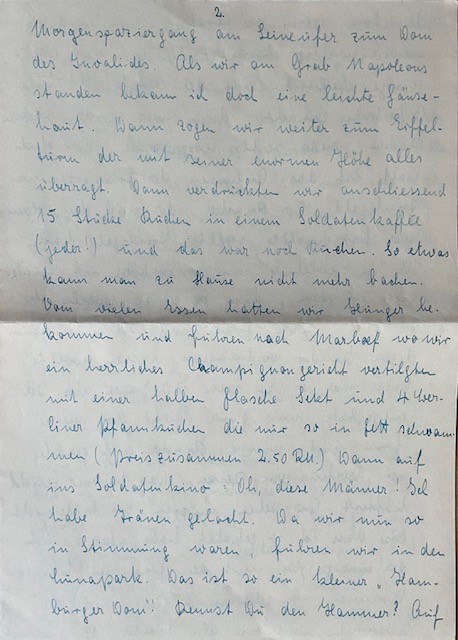 2.
Morgenspaziergang am Seineufer zum Dom
des Invalides. Als wir am Grab Napoleons
standen bekam ich doch eine leichte Gänse-
haut. Dann zogen wir weiter zum Eiffel-
turm der mit seiner enormen Höhe alles
überragt. Dann verdrückten wir anschliessend
15 Stücke Kuchen in einem Soldatenkaffee
(jeder!) und das war noch Kuchen. So etwas
kann man zu Hause nicht mehr backen.
Vom vielen Essen hatten wir Hunger be-
kommen und fuhren nach Marboef wo wir
ein herrliches Champignongericht vertilgten
mit einer halben Flasche Sekt und 4 Ber-
liner Pfannkuchen die nur so in Fett schwam-
men (Preis zusammen 2.50 RM.) Dann auf
ins Soldatenkino: Oh, diese Männer! Ich
habe Tränen gelacht. Da wir nun so
in Stimmung waren, fuhren wir in den
Lunapark. Das ist so ein kleiner „Ham-
burger Dom". Kennst Du den Hammer? Auf